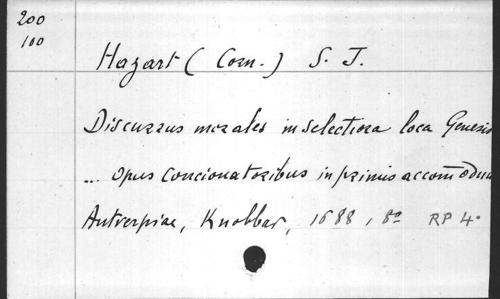 200
100
Hazart (Corn.) S. J.
Discursus morales in selectiora loca Genesis
... opus concionatoribus in primis accom̄odum
Antverpiae, Knobbar, 1688, 8º RP 4º